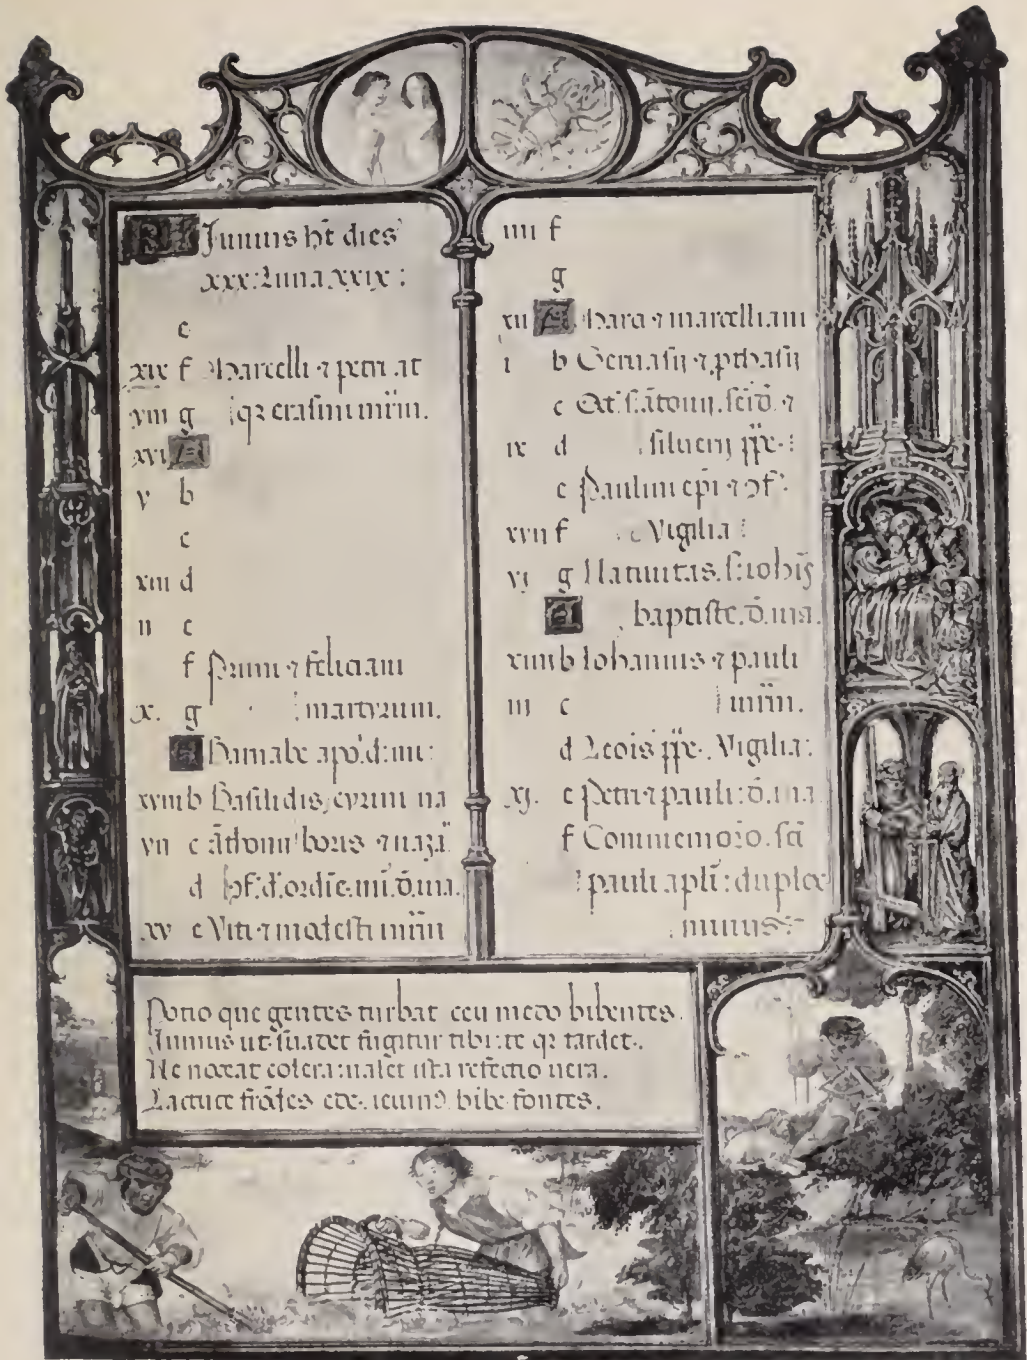 KL Junius ht dies
xxx: Luna xxix:
e
xix f Marcelli ⁊ petri at
viii g qꝫ erasmi mrm.
xvi A
v b
c
xiii d
ii e
f Primi ⁊ feliciani
x. g martyrum.
A Barnabe apo. d: mi:
xviii b Basilidis, cyrini na
vii c
d
xv e Viti ⁊ modesti mrm
iiii f
g
xii A Marci ⁊ marcelliani
i b Geruasij ⁊ ꝓthasij
c
ix d siluerij ppe:
e Paulini epi ⁊ ꝯf.
xvii f Vigilia:
vi g Natiuitas. s: iohis
A baptiste. d. ma.
xiiii b Iohannis ⁊ pauli
iii c mrm.
d Leois ppe. Vigilia:
xj. e Petri ⁊ pauli: d. ma
f Commemoro. sci
pauli apli: duplex
minus:
Potio que gentes turbat ceu medo bibentes.
Junius ut suadet fugitur tibi: te qꝫ tardet.
Ne noceat colera: ualet ista refectio uera.
Lactuce frodes ede. ieiunꝰ bibe fontes.